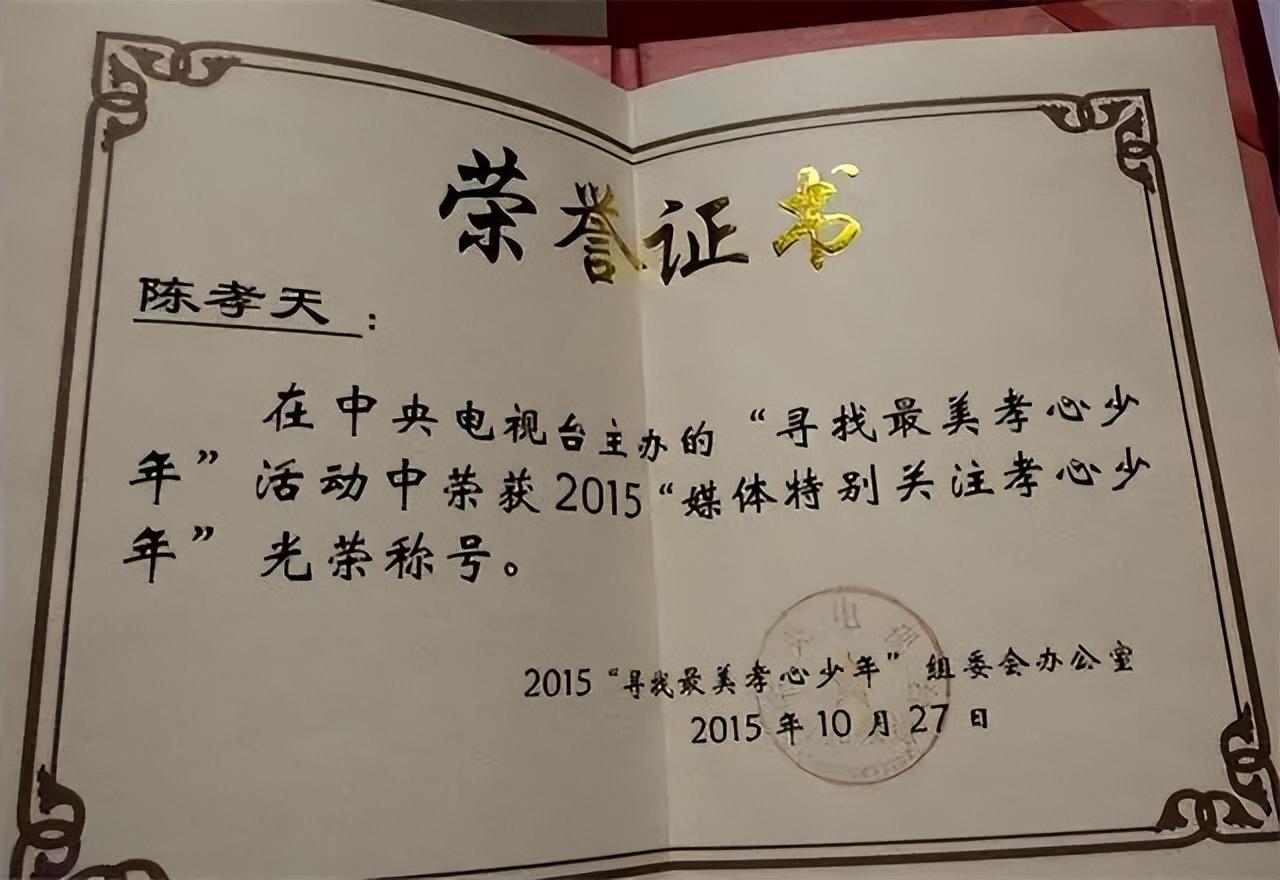 荣誉证书
陈孝天：
在中央电视台主办的“寻找最美孝心少
年”活动中荣获2015“媒体特别关注孝心少
年”光荣称号。
2015“寻找最美孝心少年”组委会办公室
2015年10月27日